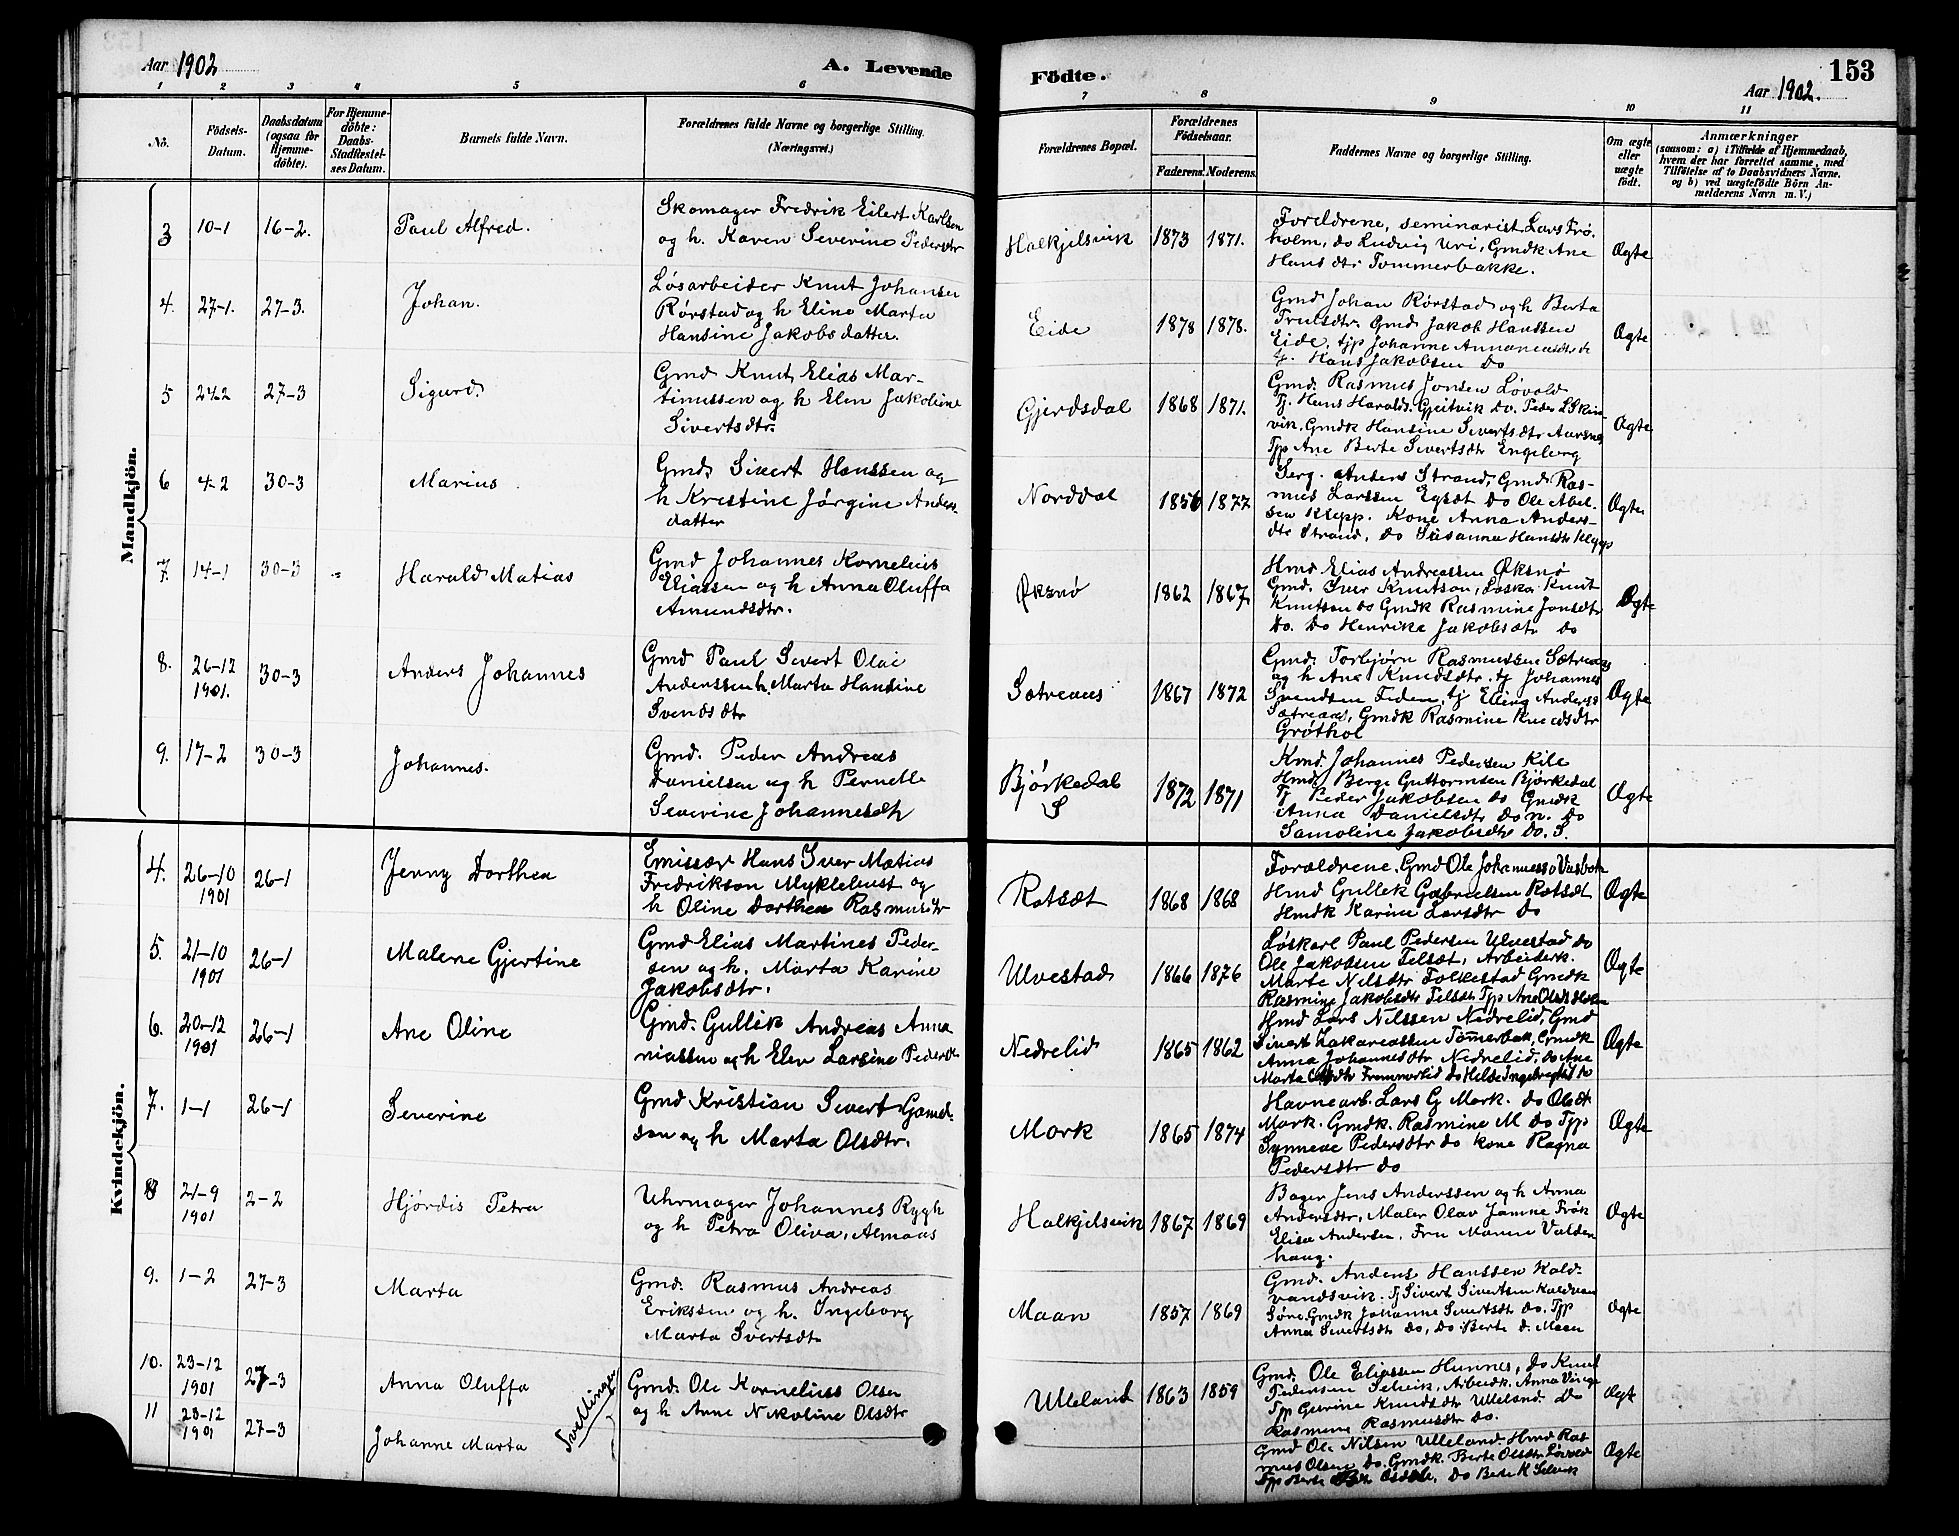 Aar 1902
A. Levende
Födte.
153
Aar 1902.
1 2 3 4 5 6 7 8 9 10 11
No.
Födsels-Datum.
Daabsdatum (ogsaa for Hjemme-döbte).
For Hjemme-döbte: Daabs-Stadfæstel-ses Datum.
Barnets fulde Navn.
Forældrenes fulde Navne og borgerlige Stilling.
(Næringsvei.)
Forældrenes Bopæl.
Forældrenes Födselsaar.
Faderens. Moderens.
Faddernes Navne og borgerlige Stilling.
Om ægte eller uægte födt.
Anmærkninger
(saasom: a) i Tilfælde af Hjemmedaab,
hvem der har forrettet samme, med
Tilföielse af to Daabsvidners Navne.
og b) ved uægtefödte Börn An-
melderens Navn m. V.)
Mandkjön.
3 10-1 16-2. Paul Alfred.
Skomager Fredrik Eilert Karlsen
og h. Karen Severine Pedersdtr
Halkjelsvik 1873 1871.
Foreldrene, seminarist Lars Frø-
holm, do Ludvig Uri, Gmdk Ane
Hansdtr Tommerbakke.
Ægte
4. 27-1. 27-3. Johan.
Løsarbeider Knut Johansen
Rørstad og h Eline Marta
Hansine Jakobsdatter.
Eide 1878 1878.
Gmd Johan Rørstad og h Berta
Truls dtr. Gmd Jakob Hanssen
Eide, tjp Johanne
Hans Jakobsen do
Ægte
5 24-2 27-3 Sigurd.
Gmd Knut Elias Mar-
tinussen og h Elen Jakobine
Sivertsdtr.
Gjerdsdal 1868 1871.
Gmd. Rasmus Jonsen Løvold
Tj. Hans Haralds. Gjeitvik do. Peder
vik, Gmdk Hansine Sivertsdtr Aarsnes
Tjp Ane Berte Sivertsdtr Engeberg
Ægte
6 4-2 30-3 Marius.
Gmd. Sivert Hanssen og
h Kristine Jørgine Anders-
datter
Norddal 1856 1877
Serg. Anders Strand, Gmd. Ras-
mus Larssen Egsæt do Ole Abel-
sen Klepp. Kone Anna Anders-
dtr Strand, do Susanna Hansdtr Klepp
Ægte
7. 14-1 30-3 Harald Matias
Gmd Johannes Kornelius
Eliassen og h Anna Oluffa
Amundsdtr.
Øksnø 1862 1867
Hmd Elias Andreassen Øksnø
Gmd. Iver Knutson, Løska Knut
Knutson do Gmdk Rasmine Jonsdtr
do. do Henrika Jakobsdtr do
Ægte
8. 26-12 1901. 30-3 Anders Johannes
Gmd Paul Sivert Olai
Anderssen h. Marta Hansine
Svendsdtr
Sætreaas 1867 1872
Gmd. Torbjørn Rasmussen Sætreaas
og h Ane Knudsdtr. tj Johannes
Svendsen Eiden, tj Elling Anderss
Sætreaas, Gmdk Rasmine Knudsdtr
Grøthol
Ægte
9. 17-2 30-3 Johannes.
Gmd. Peder Andreas
Danielsen og h Pernelle
Severine Johannesdtr
Bjørkedal S 1872 1871
Kmd. Johannes Pedersen Kile
Hmd. Berge Guttormsen Bjørkedal
Tj Peder Jakobsen do Gmdk
Anna Danielsdtr do n. do
Samoline Jakobsdtr do. S.
Ægte
Kvindekjön.
4. 26-10 1901 26-1 Jenny Dorthea
Emissær Hans Iver Matias
Fredrikson Myklebust og
h Oline Dorthea Rasmusdtr
Rotsæt 1868 1868
Forældrene, Gmd Ole Johannesso
Hmd Gullek Gabrielsen Rotsæt
Hmdk Karine Larsdtr do
Ægte
5. 21-10 1901 26-1 Malene Gjertine
Gmd Elias Martines Peder-
sen og h. Marta Karine
Jakobsdtr.
Ulvestad 1866 1876
Løskarl Paul Pedersen Ulvestad do
Ole Jakobsen Felsæt, Arbeiderk.
Marte Nilsdtr Folkestad Gmdk
Rasmine Jakobsdtr Felsæt Tjp Ane Olsdtr
Ægte
6. 20-12 1901 26-1 Ane Oline
Gmd. Gullik Andreas Anna
niassen og h Elen Larsine Pedersdtr
Nedrelid 1865 1862
Hmd Lars Nilssen Nedrelid, Gmd
Sivert Zakariassen Tømerbak, Gmdk
Anna Johannesdtr Nedrelid, do Ane
Marta Frammerlid do Hilde Ingebregtsd do
Ægte
7. 1-1 26-1 Severine
Gmd Kristian Sivert Gamel-
sen og h Marta Olsdtr.
Mork 1865 1874
Havnearb. Lars G Mork. do Ole
Mork. Gmdk. Rasmine M do Tjp
Synneve Pedersdtr do kone Ragna
Pedersdtr do
Ægte
8 21-9 1901 2-2 Hjørdis Petra
Uhrmager Johannes Rygh
og h Petra Oliva, Almaas
Halkjelsvik 1867 1869
Bager Jens Anderssen og h Anna
Andersdtr, Maler Olav Jamne Frøk
Elisa Andersen. Fru Maren Valden
haug.
Ægte
9. 1-2 27-3 Marta
Gmd. Rasmus Andreas
Erikssen og h. Ingeborg
Marta Svertsdtr
Maan 1857 1869
Gmd. Anders Hanssen Kald-
vandsvik. Tj Sivert Sivertsen Kaldvatn
Søre. Gmdk Johanne Sivertsdtr do. Tjp
Anna Sivertsdtr do, do Berte d. Maan
Ægte
10. 23-12 1901 27-3 Anna Oluffa
Tvellinger
Gmd. Ole Kornelius Olsen
og h Anne Nikoline Olsdtr
Ulleland 1863 1859
Gmd. Ole Eliassen Hunnes, do Knut
Pedersen Selvik, Arbeidk. Anna Vinge
Tjp Gurine Knudsdtr Ulleland. do
Rasmine Rasmusdtr do.
Ægt
11 23-12 1901 27-3 Johanne Marta
Gmd Ole Nilsen Ulleland. Hmd Ras-
mus Olsen do. Gmdk. Berte Olsdtr Løvold
Tjp Berte do Berte K Selvik
Ægte